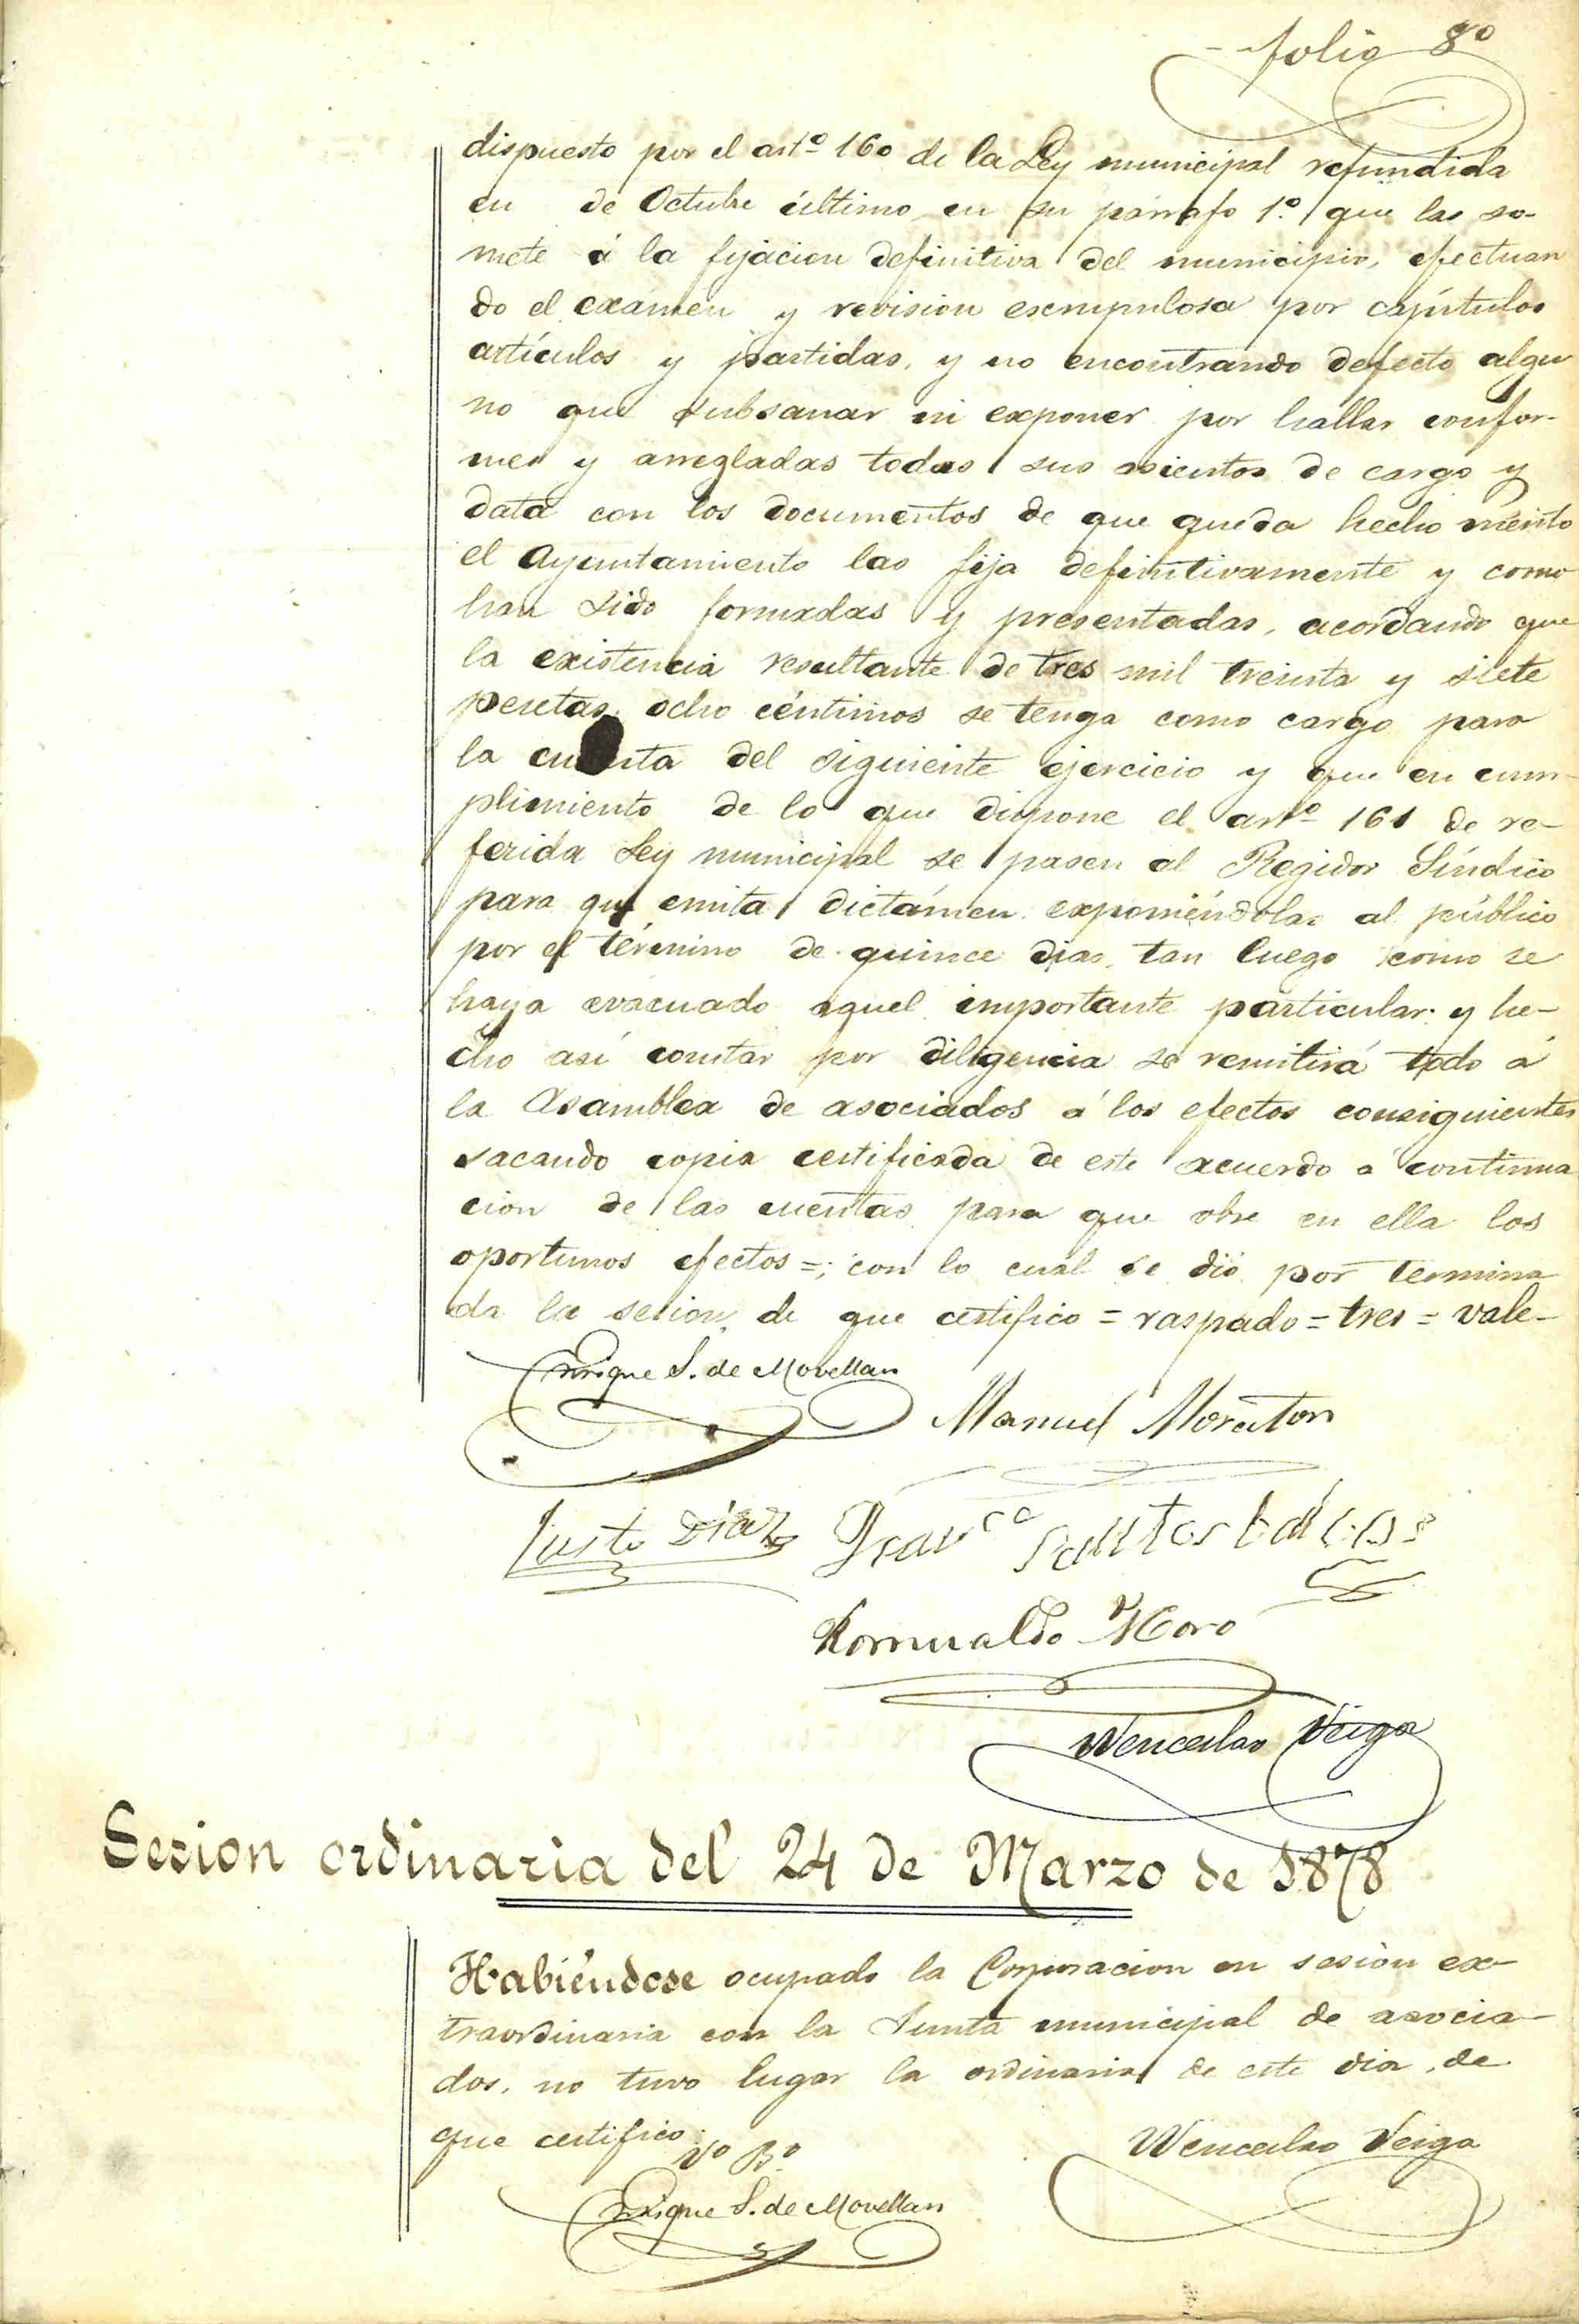 folio 8º
dispuesto por el artº 160 de la Ley municipal refundida
en de Octubre último, en su párrafo 1.º que las so-
mete á la fijacion definitiva del municipio, efectuan
do el exámen y revision escrupulosa por capítulos
artículos y partidas, y no encontrando defecto algu
no que subsanar ni exponer por hallar confor-
mes y arregladas todas sus asientos de cargo y
data con los documentos de que queda hecho mérito
el Ayuntamiento las fija definitivamente y como
han sido formadas y presentadas, acordando que
la existencia resultante de tres mil treinta y siete
pesetas ocho céntimos se tenga como cargo para
la cuenta del siguiente ejercicio y que en cum-
plimiento de lo que dispone el artº 161 de re-
ferida Ley municipal se pasen al Regidor Síndico
para que emita dictámen exponiéndolas al público
por el término de quince dias, tan luego como se
haya evacuado aquel importante particular; y he-
cho así constar por diligencia se remitirá todo á
la Asamblea de asociados á los efectos consiguientes
sacando copia certificada de este acuerdo á continua
cion de las cuentas para que obre en ella los
oportunos efectos =; con lo cual se dió por termina
da la sesion, de que certifico = raspado = tres = vale-
Enrique S. de Movellan
Manuel Moraton
Justo Diaz Franco Santos
Romualdo Moro
Wenceslao Veiga
Sesion ordinaria del 24 de Marzo de 1878
Habiéndose ocupado la Corporacion en sesion ex-
traordinaria con la Junta municipal de asocia-
dos, no tuvo lugar la ordinaria de este dia, de
que certifico.
Vº Bº
Wenceslao Veiga
Enrique S. de Movellan